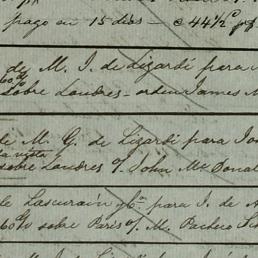 pago en 15 dias — @ 44½ c/ pf
de M. I. de Lizardi para
60 d/ sobre Londres — orden James
de M. G. de Lizardi para
la vista
sobre Londres o/ John McDonal
de Lascurain y Ca. para I. de
60 d/ sobre Paris o/ M. Pacheco